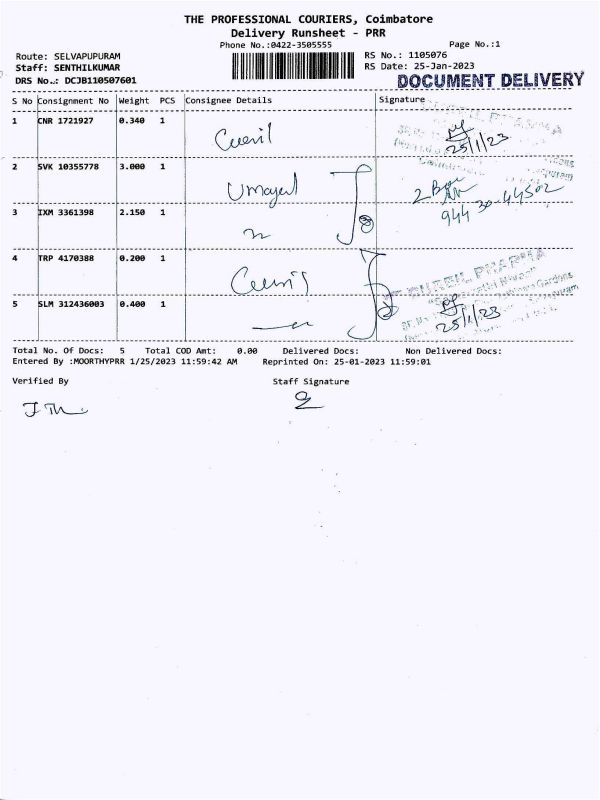 THE PROFESSIONAL COURIERS, Coimbatore
Delivery Runsheet - PRR
Phone No.:0422-3505555 Page No.:1
Route: SELVAPUPURAM RS No.: 1105076
Staff: SENTHILKUMAR RS Date: 25-Jan-2023
DRS No.: DCJB110507601 DOCUMENT DELIVERY
S No Consignment No Weight PCS Consignee Details Signature
1 CNR 1721927 0.340 1
25/1/23
2 SVK 10355778 3.000 1
944 30-44502
3 IXM 3361398 2.150 1
4 TRP 4170388 0.200 1
PHARMA
Gardens
5 SLM 312436003 0.400 1
25/1/23
Total No. Of Docs: 5 Total COD Amt: 0.00 Delivered Docs: Non Delivered Docs:
Entered By :MOORTHYPRR 1/25/2023 11:59:42 AM Reprinted On: 25-01-2023 11:59:01
Verified By Staff Signature